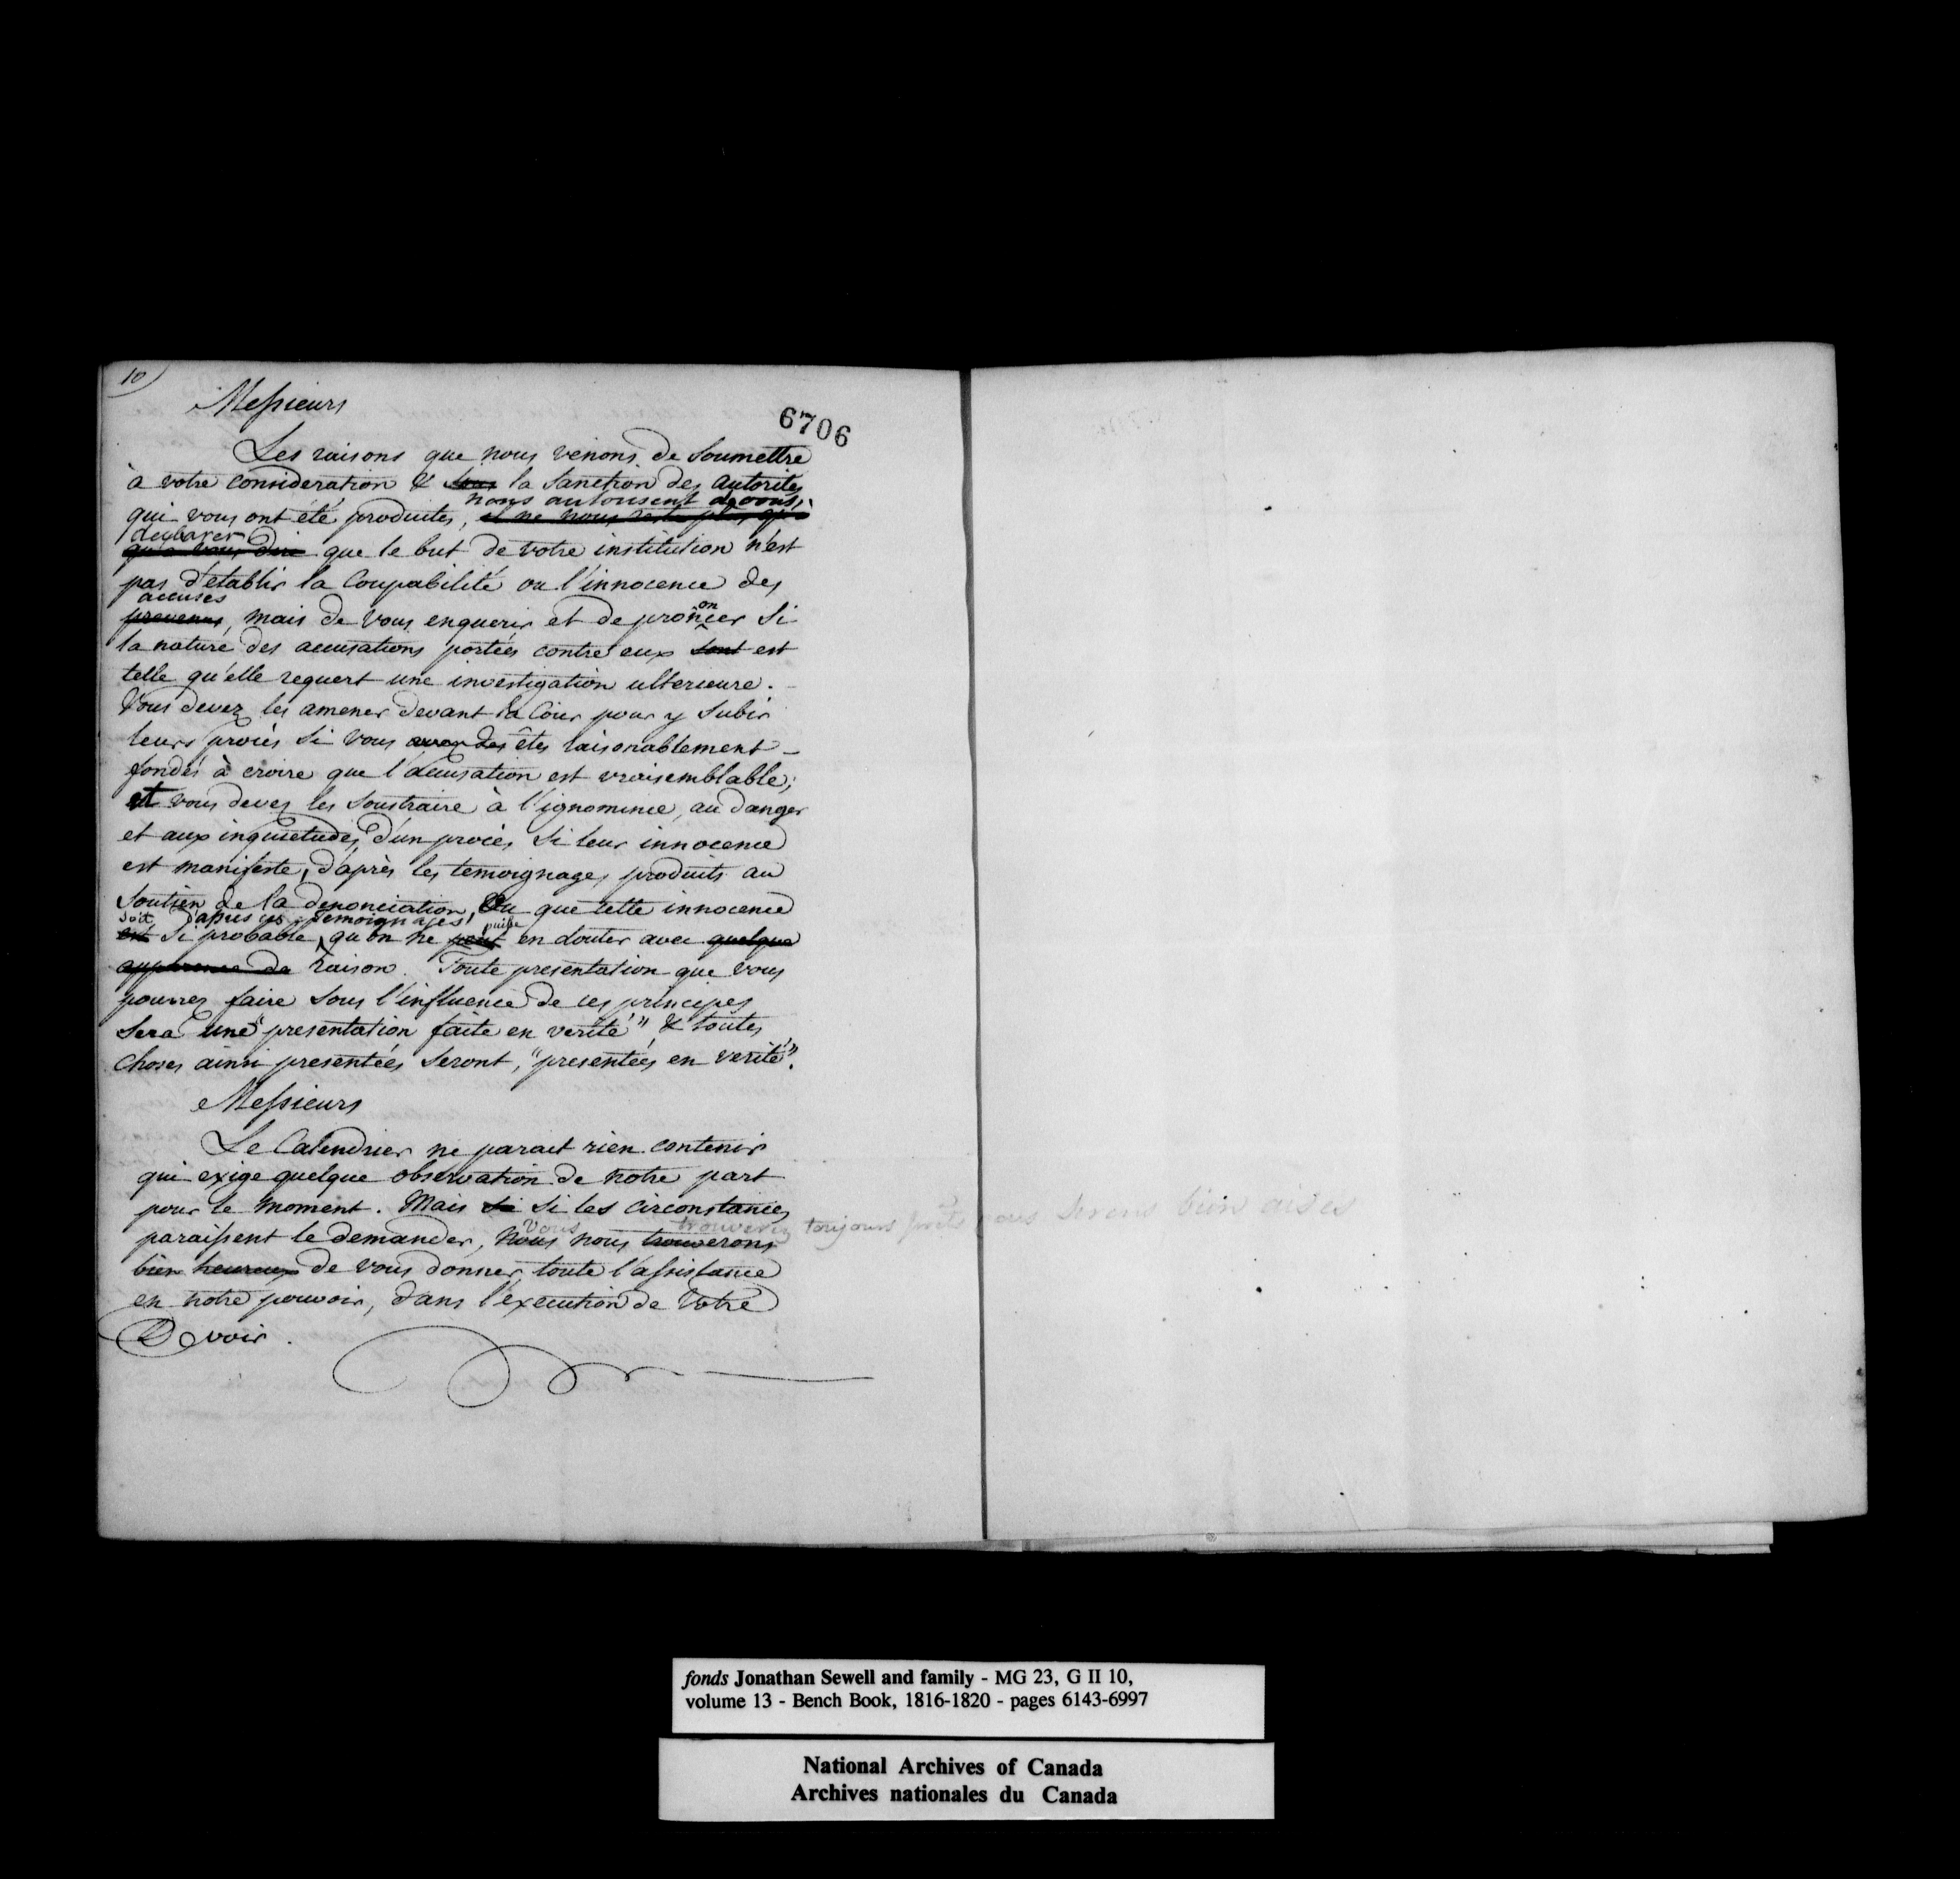 10)
Messieurs
6706
Les raisons que nous venons de Soumettre
à votre consideration & sous la Sanction des autorités
nous autorisent
qui vous ont été produites, il ne nous reste plus que
declarer
qu'a vous dire que le but de votre institution n'est
pas d'etablir la Coupabilité ou l'innocence des
accusés
prevenus, mais de vous enquerir et de prononcer Si
la nature des accusations portées contre eux sont est
telle qu'elle requert une investigation ulterieure.
Vous devez les amener devant la Cour pour y Subir
leurs procès Si vous avez des êtes raisonablement
fondés à croire que l'accusation est vraisemblable;
et vous devez les Soustraire à l'ignominie, au danger
et aux inquietudes d'un procès, Si leur innocence
est manifeste, d'après les temoignages produits au
Soutien de la denonciation, Ou que cette innocence
soit d'apres ces temoignages puisse
est Si probable, qu'on ne peut en douter avec quelque
apparence de raison. Toute presentation que vous
pourrez faire Sous l'influence de ces principes
Sera une "presentation faite en verité", & toutes
Choses ainsi presentées Seront, "presentées en verité".
Messieurs
Le Calendrier ne parait rien contenir
qui exige quelque observation de notre part
pour le moment. Mais si Si les circonstances
vous trouverez toujours prêts nous serons bien aises
paraissent le demander, Nous nous trouverons
bien heureux de vous donner toute l'assistance
en notre pouvoir, dans l'execution de Votre
Devoir.
fonds Jonathan Sewell and family - MG 23, G II 10,
volume 13 - Bench Book, 1816-1820 - pages 6143-6997
National Archives of Canada
Archives nationales du Canada